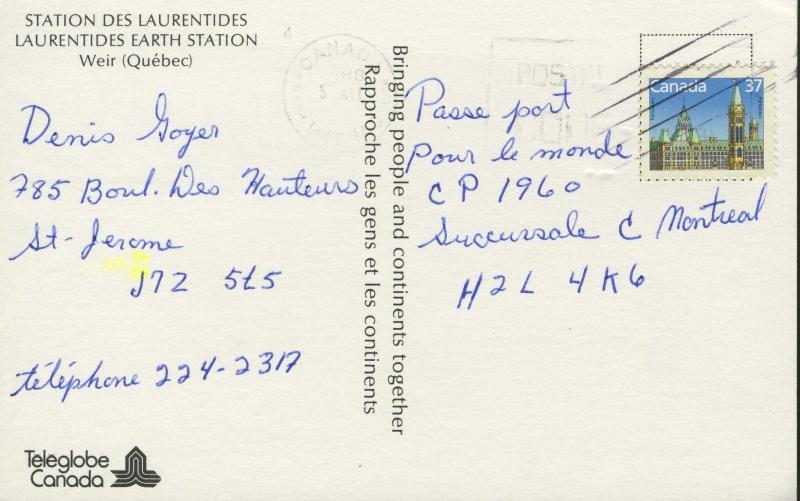 STATION DES LAURENTIDES
LAURENTIDES EARTH STATION
Weir (Québec)
Denis Goyer
785 Boul. Des Hauteurs
St-Jerome
J7Z 5L5
téléphone 224-2317
Teleglobe
Canada
Bringing people and continents together
Rapproche les gens et les continents
4
CANADA
Canada 37
Passe port
Pour le monde
CP 1960
Succursale C Montreal
H2L 4K6